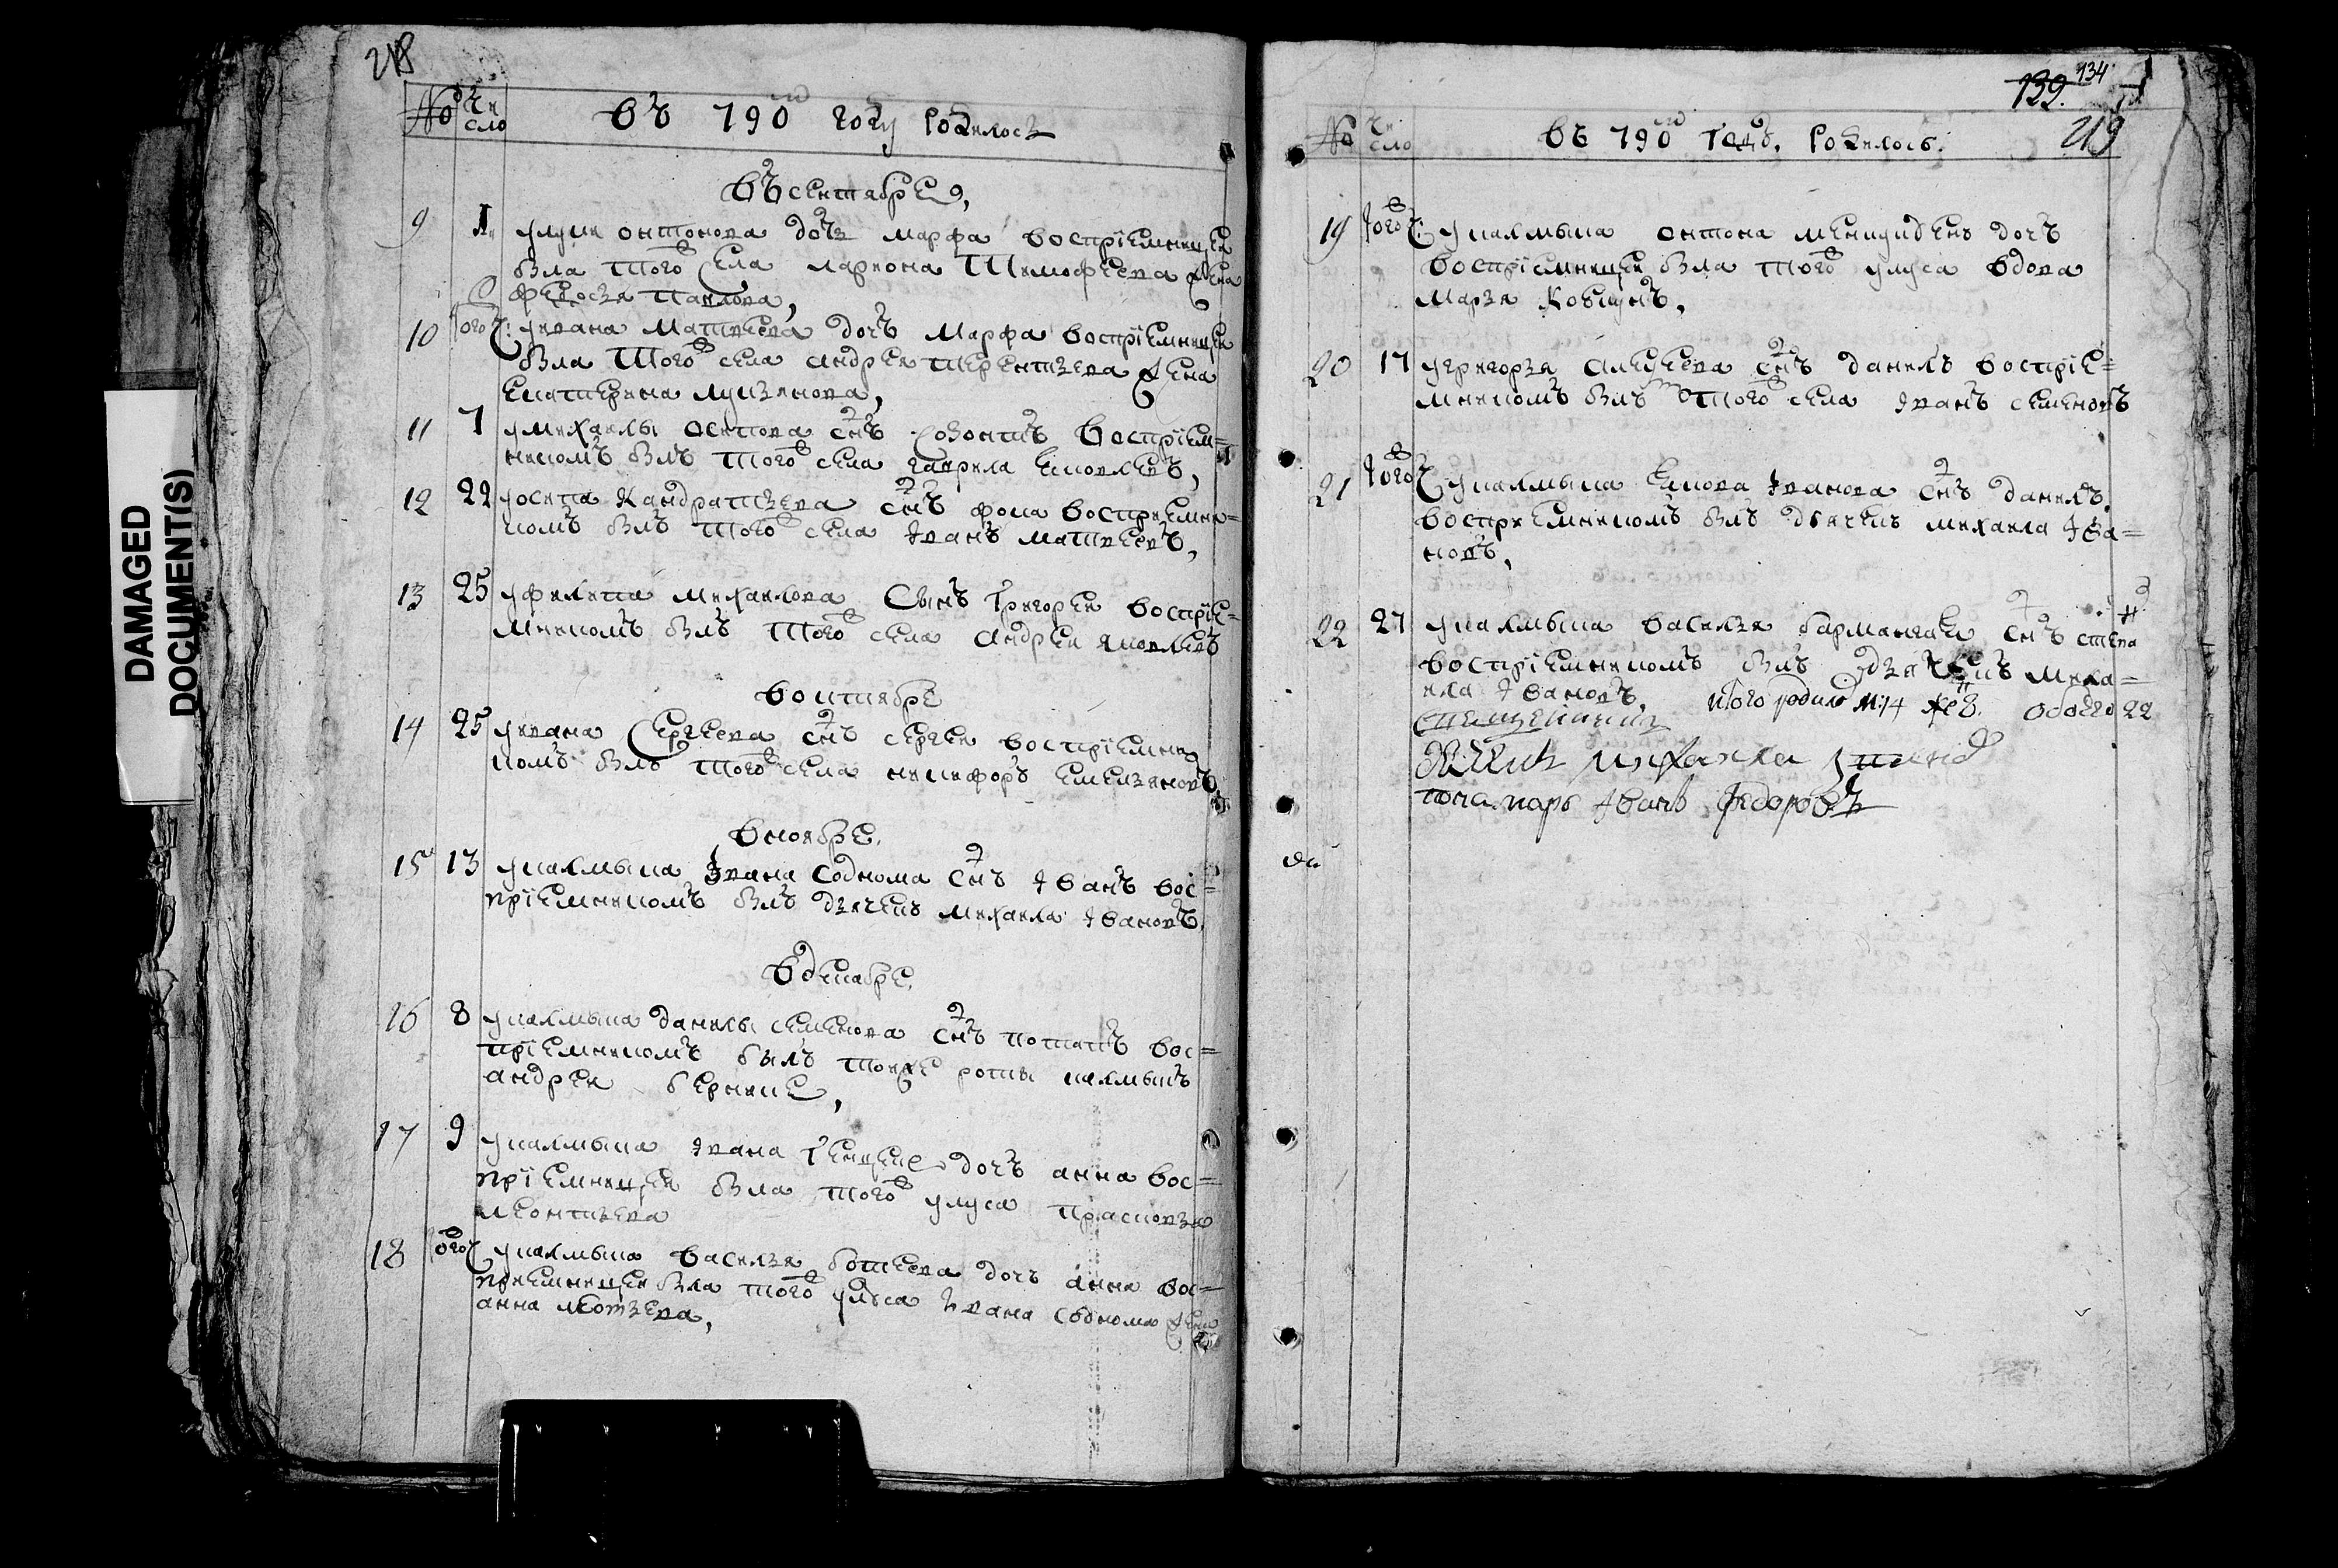 218
№ Чи
сло
въ 790м году Родилось
въ сентябре,
9 1 улуки онтонова дочь марфа восприемницей
была того села лариона Тимофеева жена
федосья Павлова,
10 того ч: уивана Матвеева дочь Марфа восприемницей
была того села андрея терентьева жена
екатерина лукьянова,
11 7 умихаилы осипова снъ созонтъ восприем=
никомъ былъ того села гаврила яковлевъ,
12 22 уосипа Кандратьева снъ фома восприемни=
комъ былъ того села Iванъ матвеевъ,
13 25 уфилипа михаилова Сынъ Григореи восприе=
мникомъ былъ того села андреи яковлевъ
во октябре
14 25 уивана Сергеева снъ сергеи восприемни
комъ былъ того села никифоръ емельяновъ,
в ноябре.
15 13 укалмыка Iвана Соднома снъ Iванъ вос=
приемникомъ былъ дьячекъ михаила Iвановъ.
в декабре.
16 8 укалмыка данилы семенова снъ потапъ вос=
приемникомъ былъ тоиже роты калмыкъ
андреи
17 9 укалмыка Iвана дочь анна вос=
приемницеи была того улуса прасковья
леонтьева
18 того ч укалмыка василья ботеева дочь анна вос=
приемницеи была того улуса Iвана Соднома жена
анна леотьева,
DAMAGED
DOCUMENT(S)
139. 134
№ Чи
сло
въ 790м годъ. Родилось.
219
19 того ч: укалмыка онтона дочь
восприемницеи была того улуса вдова
марья
20 17 угригорья алексеева снъ данилъ восприе=
мникомъ былъ того села Iванъ семеновъ
21 того ч укалмыка якова Iванова снъ данилъ.
восприемникомъ былъ дьячекъ михаила Iва=
новъ,
22 27 укалмыка василья снъ степа
восприемникомъ былъ дьячекъ миха=
ила Iвановъ. итого родило м: 14 же 8. обоего 22
михаила
пономарь Iванъ Федоровъ